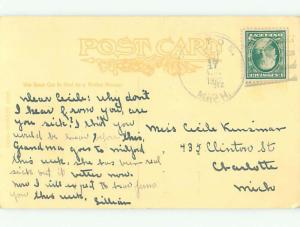 POST CARD
17
MICH.
Dear Cecile: Why don't
I hear from you are
you sick? I thot you
would be here before this,
Grandma goes to Milford
this week, she has been real
sick but is better now.
now I will expect to hear from
you this week,
Lillian
Miss Cecile Kunsman
437 Clinton St
Charlotte
Mich